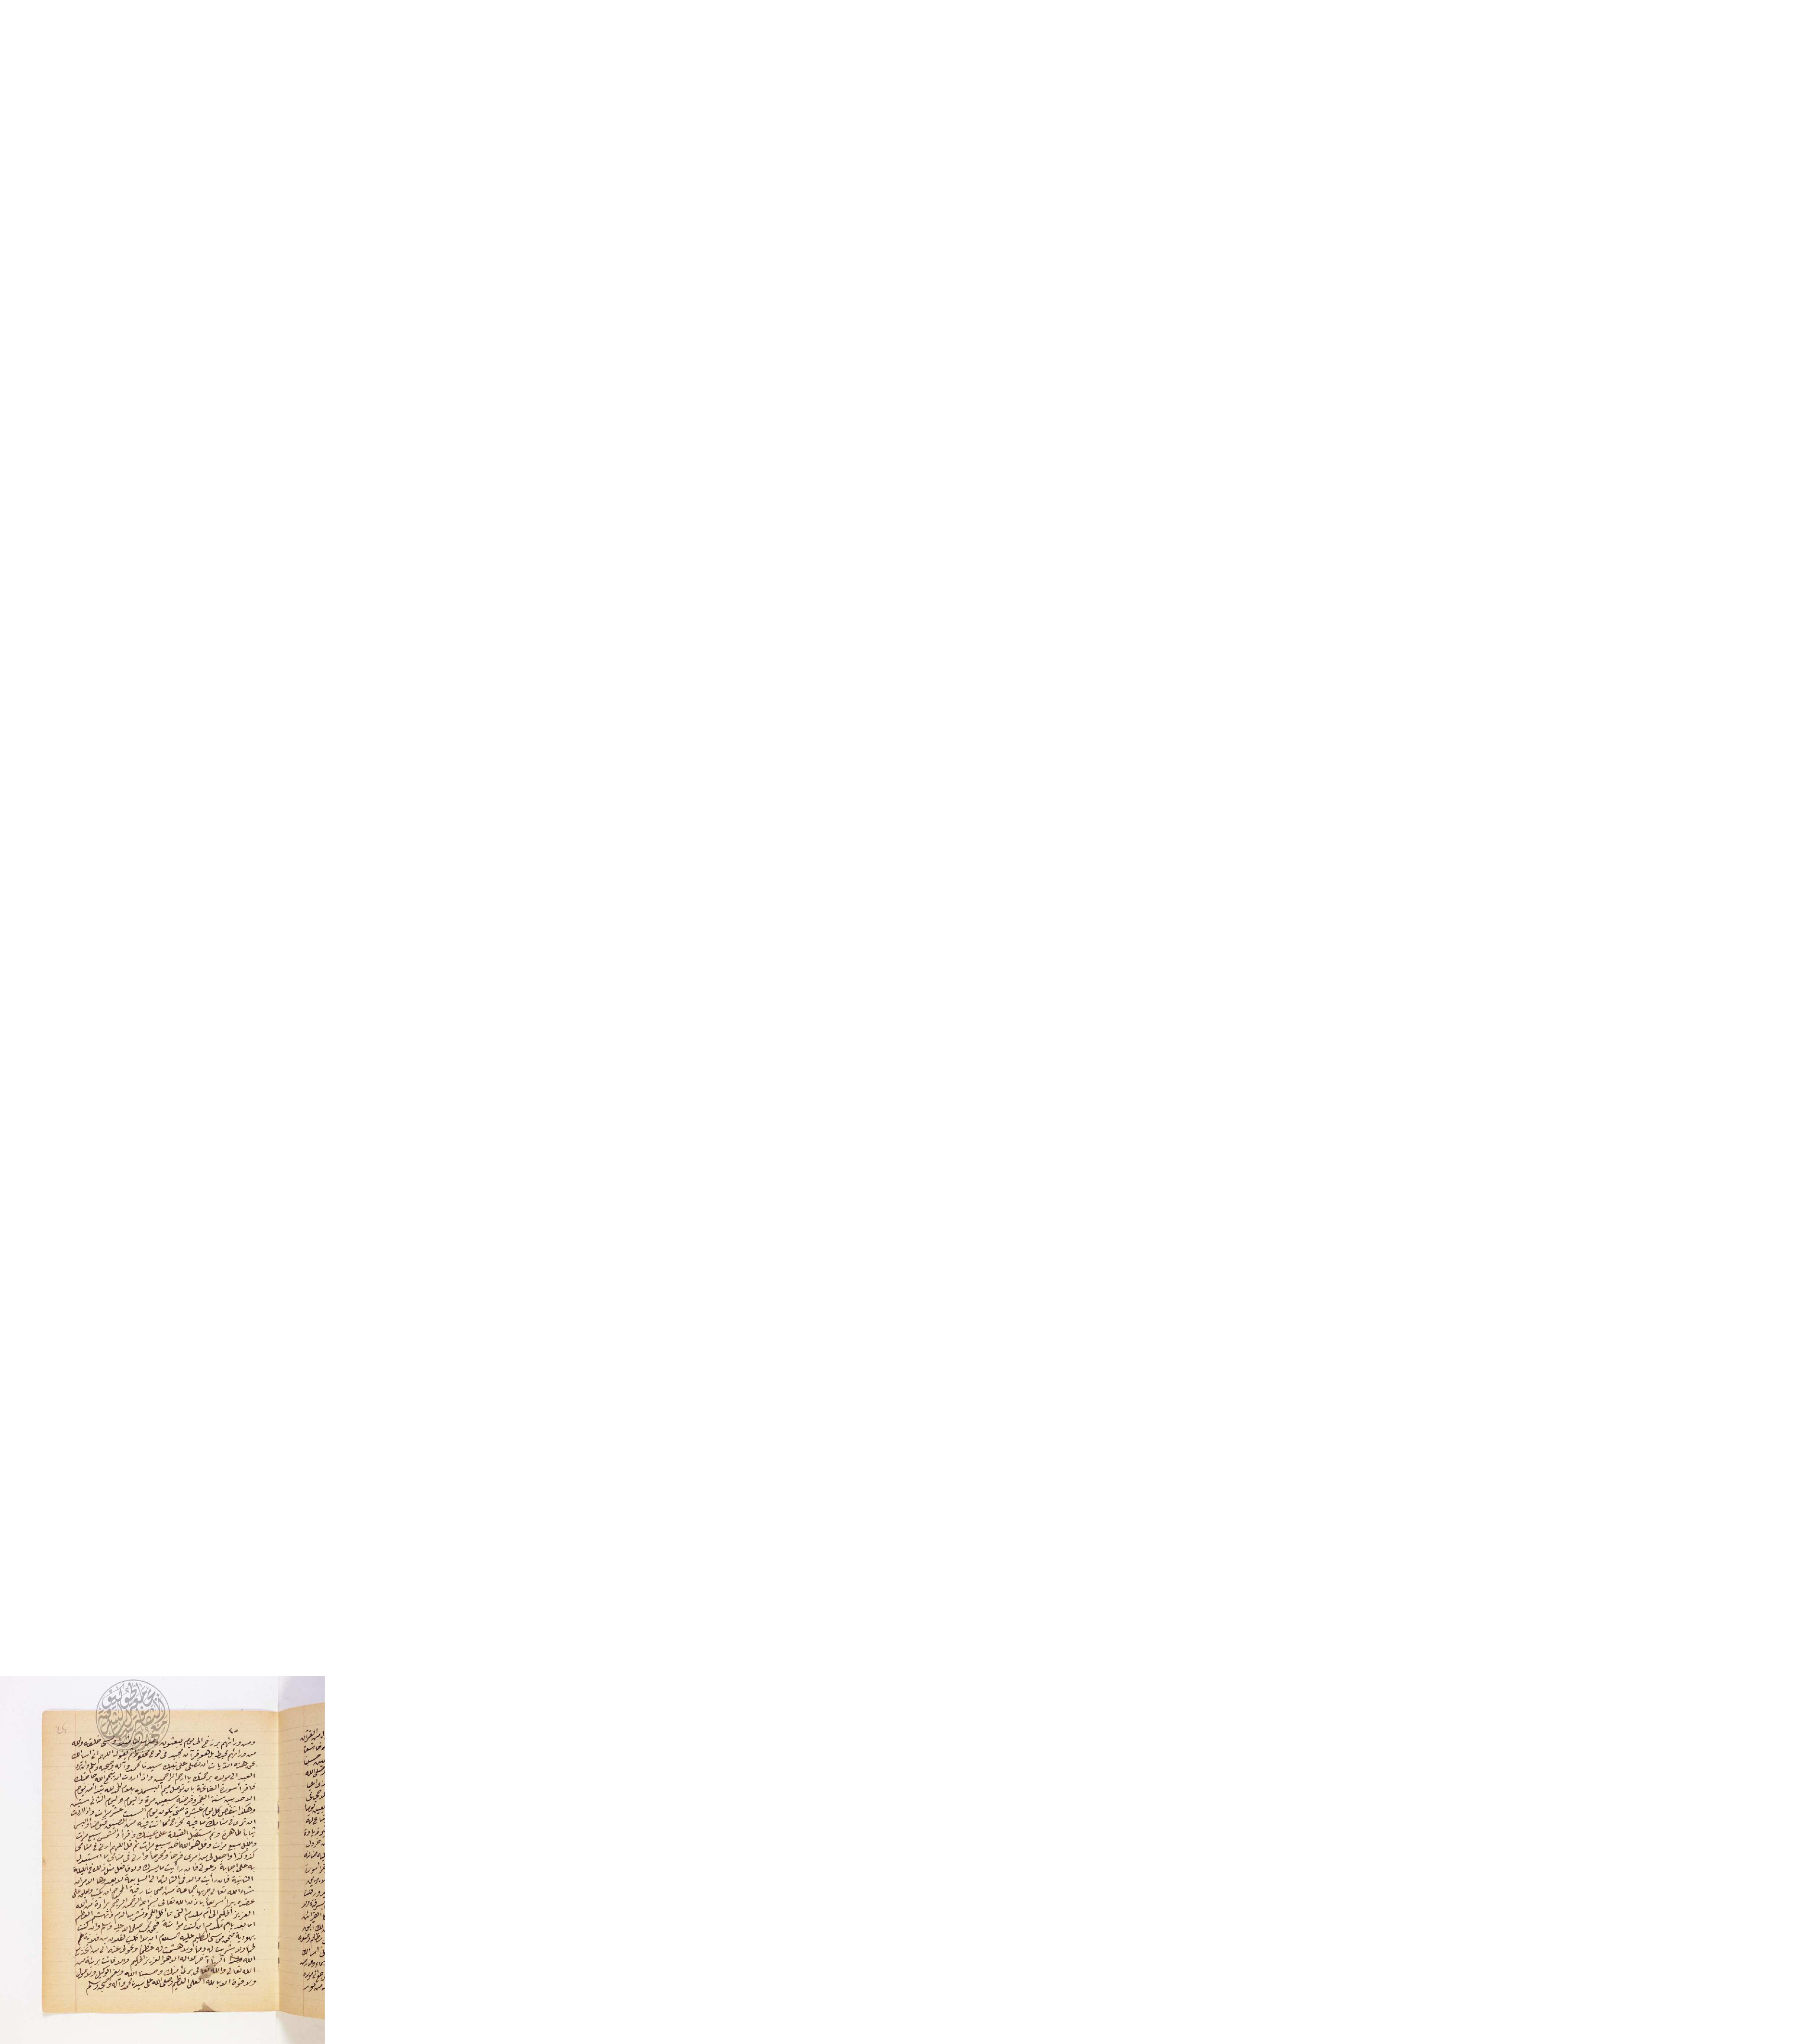 ٣٥
ومن ورائهم برزخ الى يوم يبعثون وضرب لنا مثلا ونسى خلقه والله
من ورائهم محيط بل هو قرآن مجيد فى لوح محفوظ ثم يقول اللهم انى اسألك
بحق هذه الآيات ان تصلى على نبيك سيدنا محمد وآله وصحبه وسلم وان ترد
العبد الى مولاه برحمتك يا ارحم الراحمين واذا اردت ان يقضى الله حاجتك
فاقرأ سورة الفاتحة بان توصل ميم البسملة بلام الحمد لله تبدأ من يوم
الاحد بين سنة الفجر وفرضه سبعين مرة واليوم الثانى ستين
وهكذا تنقص كل يوم عشرة حتى يكون يوم السبت عشر مرات واذا اردت
ان ترى فى منامك ما فيه مخرج مما انت فيه من الضيق فتوضأ والبس
ثيابا طاهرة ونم مستقبل القبلة على يمينك واقرأ والشمس سبع مرات
والليل سبع مرات وقل هو الله احد سبع مرات ثم قل اللهم ارنى فى منامى
كذا وكذا واجعل لى من امرى فرجا ومخرجا وارنى فى منامى ما استدل
به على اجابة دعوتى فان رأيت ما يسرك والا فافعل مثل ذلك فى الليلة
الثانية فان رأيت والا فى الثالثة الى السابعة لا يعدوها الامر ان
شاء الله تعالى جربها جماعة من اصحابنا رقية الحمى ان يكتب ويعلق على
عضده يبرأ سريعا باذن الله تعالى بسم الله الرحمن الرحيم براءة من الله
العزيز الحكيم الى ام ملدم التى تأكل اللحم وتشرب الدم وتهشم العظم
اما بعد يا ام ملدم ان كنت مؤمنة فبحق محمد صلى الله عليه وسلم وان كنت
يهودية فبحق موسى الكليم عليه السلام ان لا اكلت لفلان بن فلانة
لحما ولا شربت له دما ولا هشمت له عظما وتحولى عنه الى من اتخذ مع
الله الها آخر لا اله الا هو العزيز الحكيم والا فانت بريئة من
الله تعالى والله تعالى برئ منك وحسبنا الله ونعم الوكيل ولا حول
ولا قوة الا بالله العلى العظيم وصلى الله على سيدنا محمد وآله وصحبه وسلم